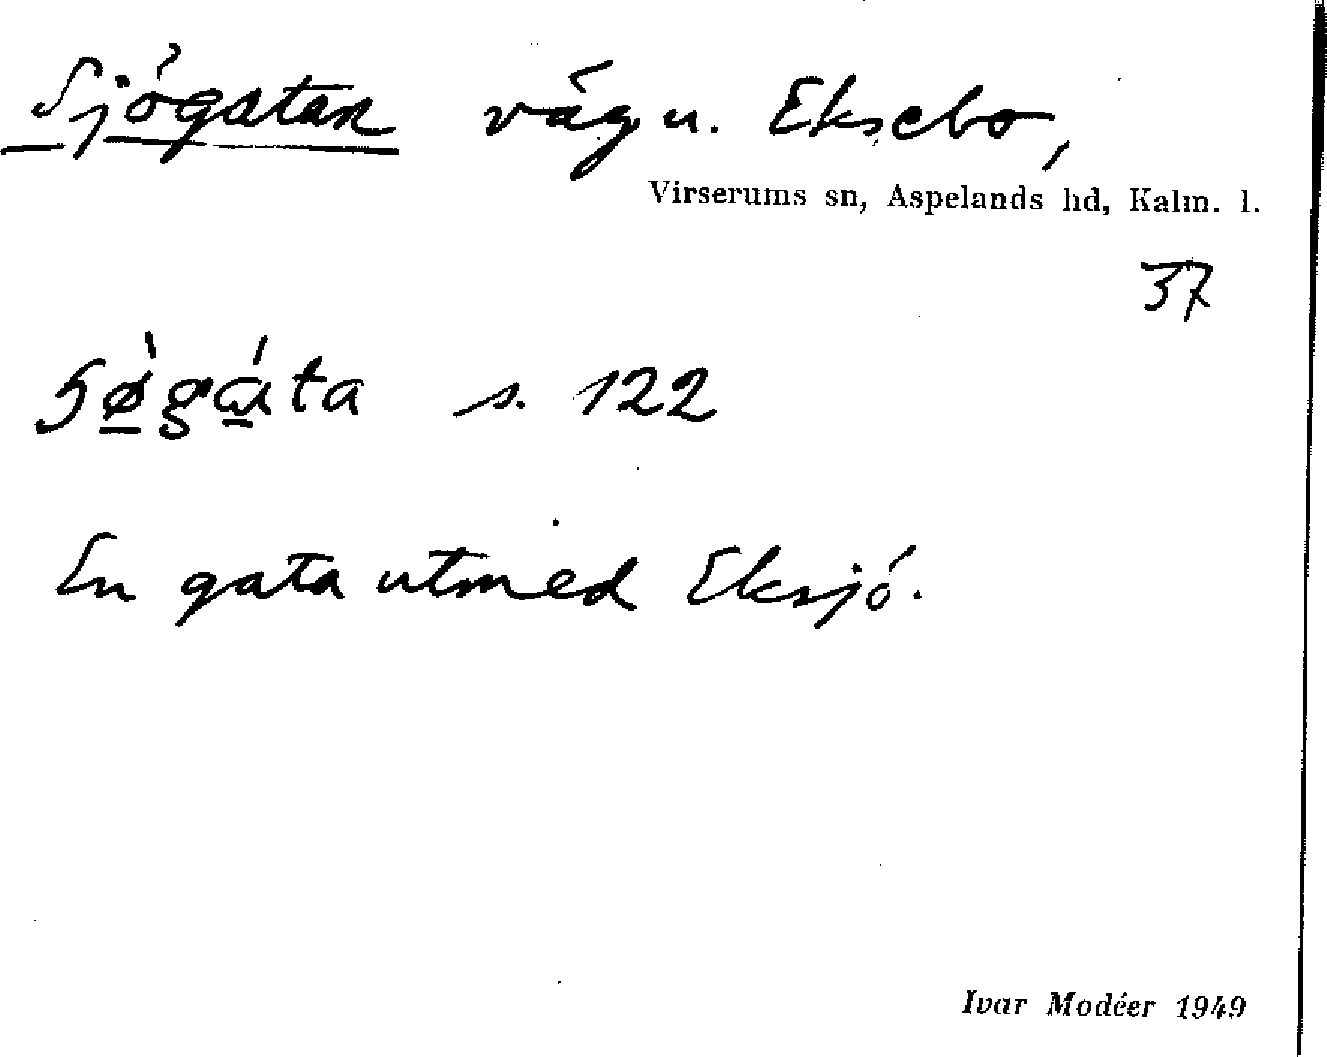 Sjögatan väg u. Eksebo,
Virserums sn, Aspelands hd, Kalm. l.
37
s. 122
En gata utmed Eksjö.
Ivar Modéer 1949